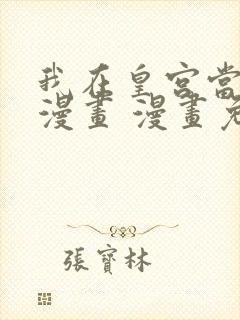 我在皇宮當
漫畫 漫畫免
張寶林